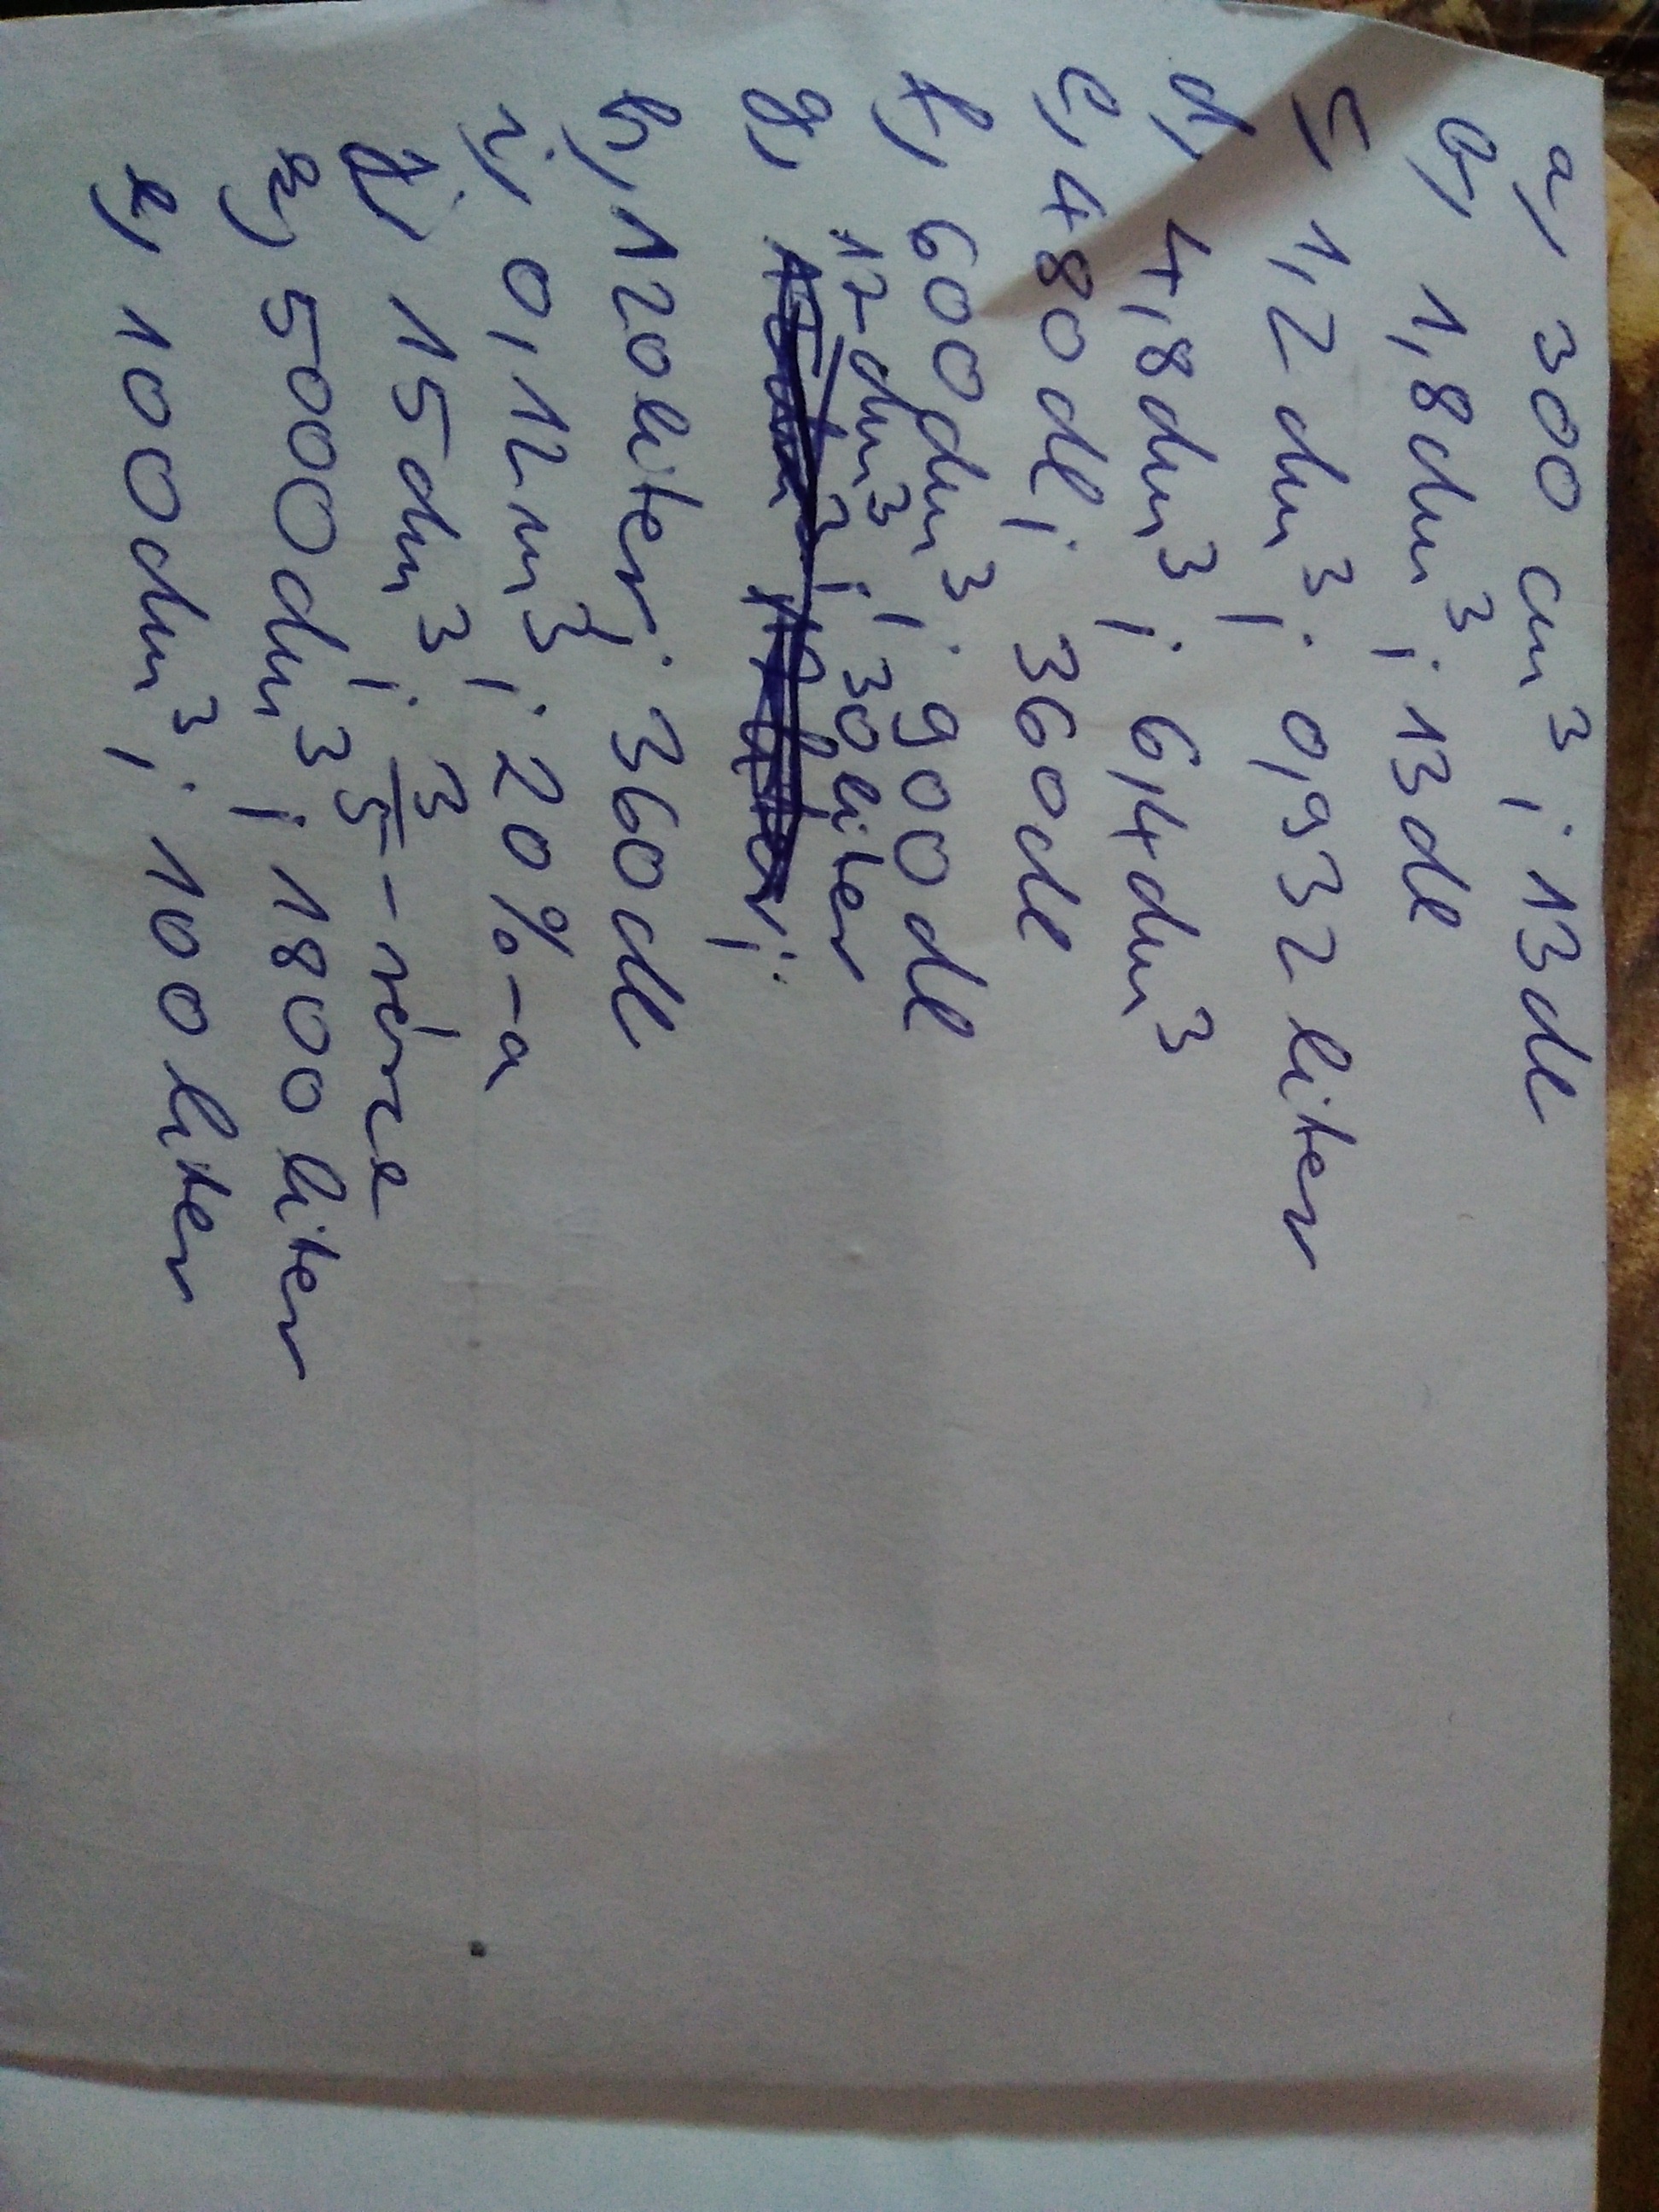 a, 300 cm³; 13 dl
b, 1,8 dm³; 13 dl
c, 1,2 dm³; 0,932 liter
d, 4,8 dm³; 6,4 dm³
e, 480 dl; 360 dl
f, 600 dm³; 900 dl
g, 12 dm³; 30 liter
h, 120 liter; 360 dl
i, 0,12 m³; 20%-a
j, 15 dm³; 3/5-része
k, 5000 dm³; 1800 liter
l, 100 dm³; 100 liter